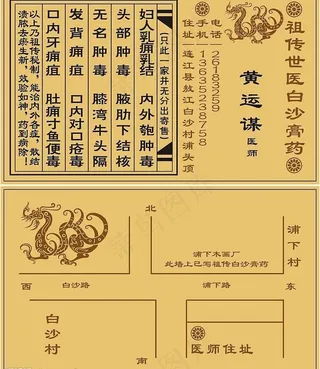 祖传世医白沙膏药
黄运谋 医师
电话：26183259
手机：13635238758
住址：连江县敖江白沙村浦头顶
（只此一家并无分出寄售）
妇人乳痈乳结 内外匏肿毒
头部肿毒 腋肋下结核
无名肿毒 膝湾牛头隔
发背痈疽 口内对口疮毒
口内牙痈疽 肚脐寸鱼便毒
以上乃祖传秘制，能治内外各症，散结
溃脓去瘀生新，效验如神，药到病除！
北
浦下村
浦下木画厂
此墙上已写祖传白沙膏药
西 白沙路 浦下路 东
白沙村
医师住址
南